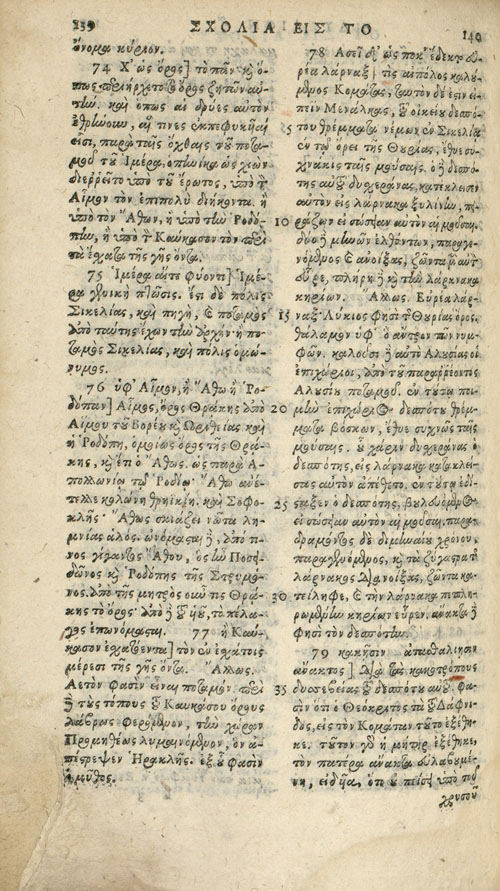 239 ΣΧΟΛΙΑ ΕΙΣ ΤΟ 240
ὄνομα κύριον.
74 Χ' ὡς ὄρος] τὸ πᾶν, καὶ ὅ-
πως περιήρχετο τὸ ὄρος ζητῶν αὐ-
τήν. καὶ ὅπως αἱ δρύες αὐτὸν
ἐθρήνουν, αἵ τινες ἐκπεφυκυῖαί
εἰσι, παρὰ ταῖς ὄχθαις τοῦ ποτα-
μοῦ τοῦ Ἱμέρα, ὁπηνίκα ὡς χιὼν
διερρεῖτο ὑπὸ τοῦ ἔρωτος, ὑπὸ τ
Αἷμον τὸν ἐπιπολὺ διήκοντα. ἢ
ὑπὸ τὸν Ἄθων, ἢ ὑπὸ τὴν Ῥοδό-
πην, ἢ ὑπὸ τ Καύκασον τὸν περὶ
τὰ ἔσχατα τῆς γῆς ὄντα.
75 Ἱμέρα αἵτε φύοντι] Ἱμέ-
ρα γενικὴ πτῶσις. ἔστι δὲ πόλις
Σικελίας, καὶ πηγή, καὶ ποταμὸς
ἀπὸ ταύτης ἔχων τὴν ἀρχήν· ἢ πο-
ταμὸς Σικελίας, καὶ πόλις ὁμώ-
νυμος.
76 ὑφ' Αἷμον, ἢ Ἄθω ἢ Ῥο-
δόπαν] Αἷμος, ὄρος Θράκης ἀπὸ
Αἵμου τοῦ Βορέου καὶ Ὠρειθείας καὶ
ἡ Ῥοδόπη, ὁμοίως ὄρος τῆς Θρά-
κης, καὶ ἔτι ὁ Ἄθως. ὡς παρὰ Ἀ-
πολλωνίῳ τῷ Ῥοδίῳ· Ἄθω ἀνέ-
τελλε κολώνη θρηϊκίη. καὶ Σοφο-
κλῆς· Ἄθως σκιάζει νῶτα λη-
μνίας ἁλός. ὠνόμασται δ, ἀπό τι-
νος γίγαντος Ἄθου, ὃς ἦν Ποσει-
δῶνος καὶ Ῥοδόπης τῆς Στρυμό-
νος. ἀπὸ τῆς μητρὸς οὖν τῆς Θρά-
κης τὸ ὄρος· ἀπὸ δὲ τοῦ υἱοῦ, τὸ πέλα-
γος ἐπωνόμασται. 77 ἢ Καύ-
κασον ἐσχατόεντα] τὸν ἐν ἐσχάτοις
μέρεσι τῆς γῆς ὄντα. Ἄλλως.
Αετὸν φασὶν εἶναι ποταμὸν περὶ
τοὺς τόπους τοῦ Καυκάσου ὄρους
λάβρως φερόμενον, τὴν χώραν
Προμηθέως λυμαινόμενον, ὃν ἀ-
πέστρεψεν Ἡρακλῆς. ἐξ οὗ φασὶν
ὁ μῦθος.
78 Ἀσεῖ δ' ὥς ποκ' ἔδεκτο εὐ-
ρέα λάρναξ] τὶς αἰπόλος καλού-
μενος Κομάτας, τοῦτον δέ ἐστιν εἰ-
πεῖν Μενάλκας, τοῦ οἰκείου δεσπό-
5 του θρέμματα νέμων ἐν Σικελίᾳ
ἐν τῷ ὄρει τῆς Θυρίας, ἔθυε συ-
χνάκις ταῖς μούσαις. ὁ δὲ δεσπό-
της αὐτοῦ δυχεράνας, κατέκλεισεν
αὐτὸν εἰς λάρνακα ξυλίνην, πει-
10 ράζων εἰ σώσειαν αὐτὸν αἱ μοῦσαι.
δύο δὲ μηνῶν ἐλθόντων, παραγε-
νόμενος καὶ ἀνοίξας, ζῶντα μ αὐτὸν
εὗρε, πλήρη δὲ καὶ τὴν λάρνακα
κηρίων. Ἄλλως. Εὐρέα λάρ-
15 ναξ· Λύκιος φησὶ Θουρίας ὄρος.
θάλαμον ὑφ' ὃ ἄντρον τῶν νυμ-
φῶν. καλοῦσι δὲ αὐτὸ Ἀλυσίας οἱ
ἐπιχώριοι, ἀπὸ τοῦ παραρρέοντος
Ἀλυσίου ποταμοῦ. ἐν τούτῳ ποι-
20 μὴν ἐπιχώριος δεσπότου θρέμ-
ματα βόσκων, ἔθυε συχνῶς ταῖς
μούσαις. οὗ χάριν δυχεράνας ὁ
δεσπότης, εἰς λάρνακα κατακλεί-
σας αὐτὸν ἀπέθετο. ἐν τούτῳ ἐδί-
25 σταζεν ὁ δεσπότης, βουλόμενος
εἰ σώσειαν αὐτὸν αἱ μοῦσαι. παρα-
δραμόντος δὲ διμηνιαίου χρόνου,
παραγενόμενος, καὶ τὰ ζύγαστρα τ
λάρνακος διανοίξας, ζῶντα κα-
30 τείληφε, καὶ τὴν λάρνακα πεπλη-
ρωμένην κηρίων εὗρεν. ἄνακτα δὲ
φησὶ τὸν δεσπότην.
79 κακῇσιν ἀτασθαλίῃσιν
ἄνακτος] Διὰ τὰς κακοτρόπους
35 δυσσεβείας τοῦ δεσπότου αὐτοῦ. φα-
σὶν ὅτι ὁ Θεόκριτος τὰ τοῦ Δάφνι-
δος, εἰς τὸν Κομάταν τοῦτο ἐξέθη-
κε. τοῦτον γὰρ ἡ μήτηρ ἐξέθηκε,
τὸν πατέρα ἄνακτα εὐλαβουμέ-
νη, εἰδυῖα, ὅτι οὐ πείσει ὑπὸ τοῦ
χρυσοῦ